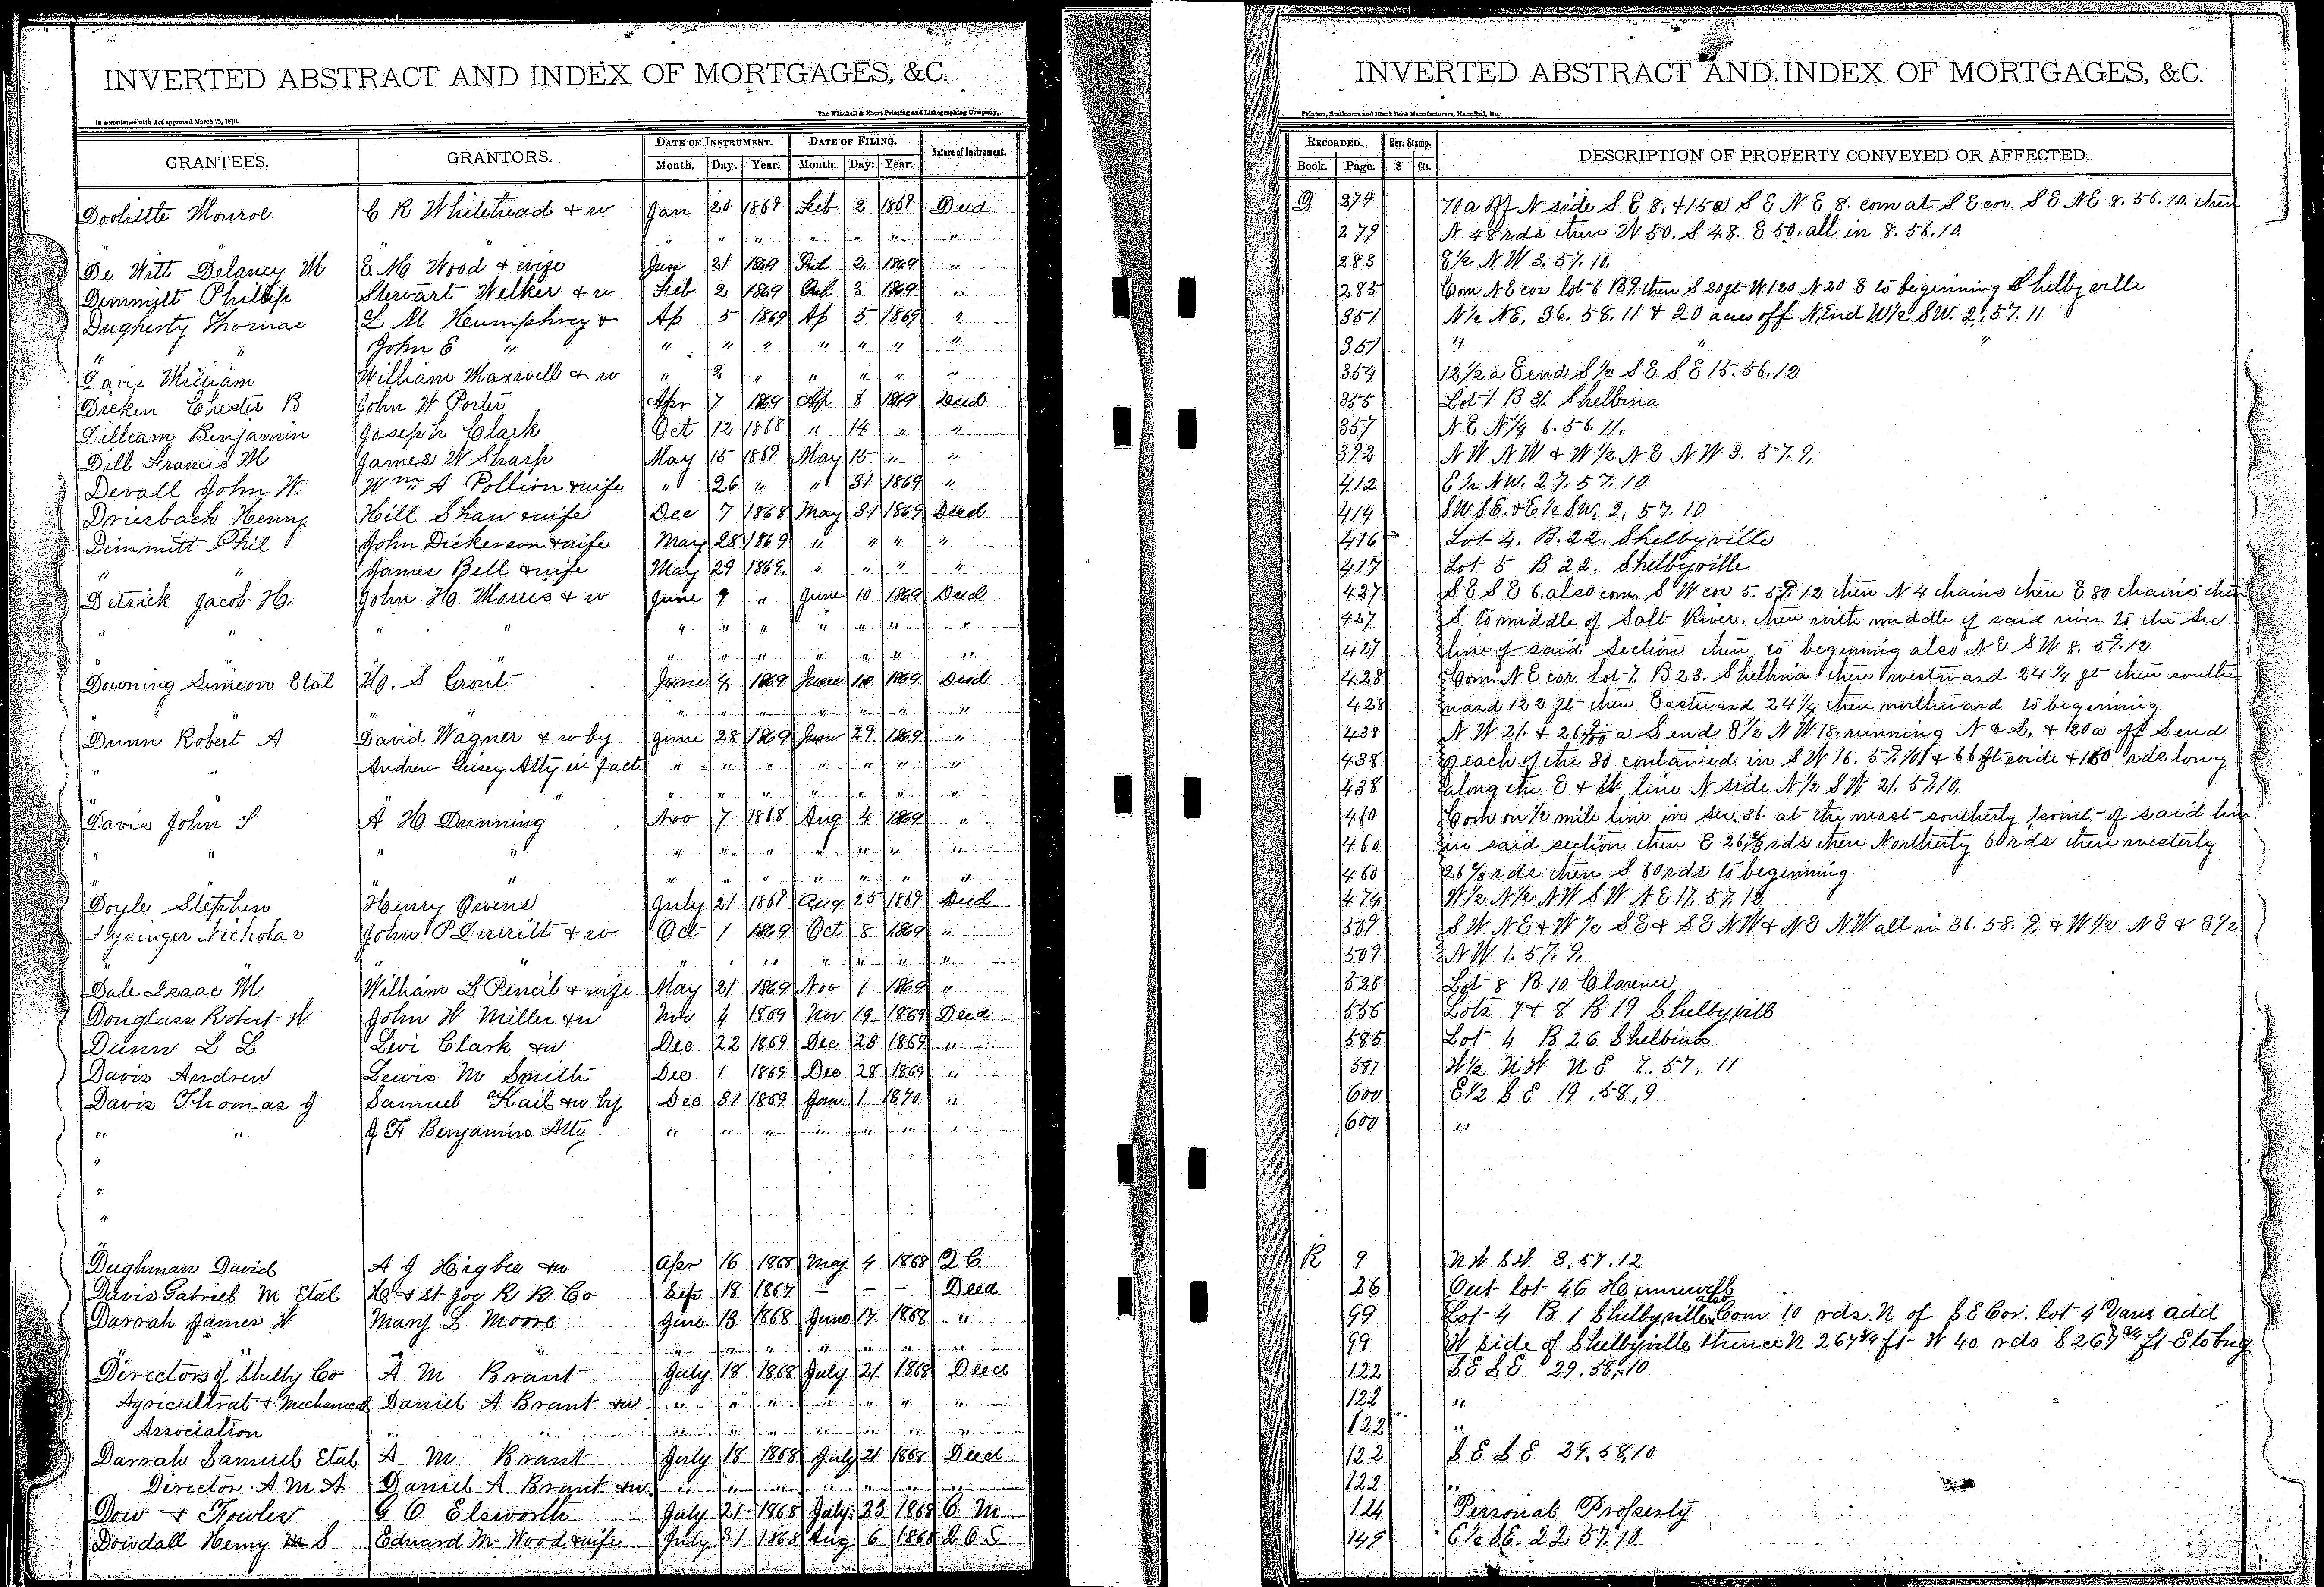 INVERTED ABSTRACT AND INDEX OF MORTGAGES, &C.
In accordance with Act approved March 25, 1870.
The Winchell & Ebert Printing and Lithographing Company,
GRANTEES. GRANTORS. DATE OF INSTRUMENT. DATE OF FILING. Nature of Instrument.
Month. Day. Year. Month. Day. Year.
Doolittle Monroe C R Whitehead & w Jan 20 1869 Feb 2 1869 Deed
" " " " " " " "
De Witt Delancy M E. M Wood & wife Jan 21 1869 Feb 2 1869 "
Dimmitt Phillip Stewart Welker & w Feb 2 1869 Feb 3 1869 "
Dugherty Thomas L M Humphrey & Ap 5 1869 Ap 5 1869 "
" " John E " " " " " " " "
William William Maxwell & w " 2 " " " " "
Dicken Chester B John W Porter Apr 7 1869 Ap 8 1869 Deed
Dilleam Benjamin Joseph Clark Oct 12 1868 " 14 " "
Dill Francis M James W Sharp May 15 1869 May 15 " "
Devall John W. Wm A Pollion & wife " 26 " " 31 1869 "
Driesbach Henry Hill Shaw & wife Dec 7 1868 May 31 1869 Deed
Dimmitt Phil John Dickerson & wife May 28 1869 " " " "
" James Bell & wife May 29 1869. " " " "
Detrick Jacob H. John H Morris & w June 9 " June 10 1869 Deed
" " " " " " " " " " "
" " " " " " " "
Downing Simeon Etal H. S Grout June 4 1869 June 10 1869 Deed
" " " " " " " "
Dunn Robert A David Wagner & w by June 28 1869 June 29. 1869 "
" " Andrew Geisey Atty in fact " " " " " " "
" " " " " " " "
Davis John S A H Dunning Nov 7 1868 Aug 4 1869 "
" " " " " " " " " " "
" " " " " " " "
Doyle Stephen Henry Owens July 21 1869 Aug 25 1869 Deed
Nicholas John P Derritt & w Oct 1 1869 Oct 8 1869 "
" " " " " " " "
Dale Isaac M William L Pencil & wife May 21 1869 Nov 1 1869 "
Douglass Robert W John W Miller & w Nov 4 1869 Nov 19 1869 Deed
Dunn L L Levi Clark & w Dec 22 1869 Dec 28 1869 "
Davis Andrew Lewis M Smith Dec 1 1869 Dec 28 1869 "
Davis Thomas J Samuel Kail & w by Dec 31 1869 Jan 1 1870 "
" " J H Benjamin Atty " " " " " " "
"
"
"
Dughman David A J Higbee & w Apr 16 1868 May 4 1868 Q C
Davis Gabriel M Etal H & St Joe R R Co Sep 18 1867 - - - Deed
Darrah James W Mary L Moore June 13 1868 June 17 1868 "
" " " " " " " "
Directors of Shelby Co A M Brant July 18 1868 July 21 1868 Deed
Agricultrat & Mechanical Daniel A Brant & w " " " " " " "
Association " " " " " " " "
Darrah Samuel Etal A M Brant July 18 1868 July 21 1868 Deed
Director A M A Daniel A Brant & w " " " " " " "
Dow & Fowler G O Elsworth July 21 1868 July 23 1868 C M
Dowdall Henry S Edward M Wood & wife July 31 1868 Aug 6 1868
INVERTED ABSTRACT AND INDEX OF MORTGAGES, &C.
Printers, Stationers and Blank Book Manufacturers, Hannibal, Mo.
RECORDED. Rev. Stamp. DESCRIPTION OF PROPERTY CONVEYED OR AFFECTED.
Book. Page. $ Cts.
Q 279 70a off N side S E 8. & 15a S E N E 8. com at S E cor. S E NE 8. 56. 10. then
279 N 48 rds then W 50. S 48. E 50. all in 8. 56. 10.
283 E½ N W 3. 57. 10.
285 Com N E cor lot 6 B 9. then S 20 ft W 120 N 20 E to beginning Shelbyville
351 N½ NE. 36. 58. 11 & 20 acres off N. End W½ SW. 2. 57. 11
351 " " "
354 12½ a E end S½ S E S E 15. 56. 12
355 Lot 1 B 31. Shelbina
357 N E N¼ 6. 56. 11.
392 N W N W & W½ N E N W 3. 57. 9.
412 E½ N W. 27. 57. 10
414 SW SE. & E½ SW. 2. 57. 10
416 Lot 4. B. 22. Shelbyville
417 Lot 5 B 22. Shelbyville
427 S E S E 6. also com. S W cor 5. 57. 12 then N 4 chains then E 80 chains then
427 S. to middle of Salt River. then with middle of said river to the Sec
427 line of said section then to beginning also N E S W 8. 57. 12
428 Com. N E cor. lot 7. B 23. Shelbina then westward 24¼ ft then south
428 ward 122 ft then Eastward 24¼ then northward to beginning
438 N W 21. & 26 a S end E½ N W 18. running N & S. & 20a off S end
438 each of the 80 contained in S W 16. 57. 10 & 66 ft wide & 160 rds long
438 along the E & W line N side N½ S W 21. 57. 10.
460 Com on ½ mile line in sec. 36. at the most southerly point of said line
460 in said section then E 26⅔ rds then Northerly 60 rds then westerly
460 26⅔ rds then S 60 rds to beginning
474 W½ N½ N W S W N E 17. 57. 12
509 S W. N E & W½ S E & S E N W & N E N W all in 36. 58. 9. & W½ N E & E½
509 N W. 1. 57. 9.
528 Lot 8 B 10 Clarence
556 Lots 7 & 8 B 19 Shelbyville
585 Lot 4 B 26 Shelbina
587 W½ N W N E 7. 57, 11
600 E½ S E 19, 58, 9
600 "
R 9 N W S W 3, 57. 12
28 Out lot 46 Hunnewell
99 Lot 4 B 1 Shelbyville also Com 10 rds. N of S E Cor. lot 4 Davis add
99 W side of Shelbyville thence N 267¾ ft W 40 rds S 267¾ ft E to beg
122 S E S E 29. 58. 10
122 "
122 "
122 S E S E 29, 58, 10
122 "
124 Personal Property
149 E½ S E. 22. 57. 10